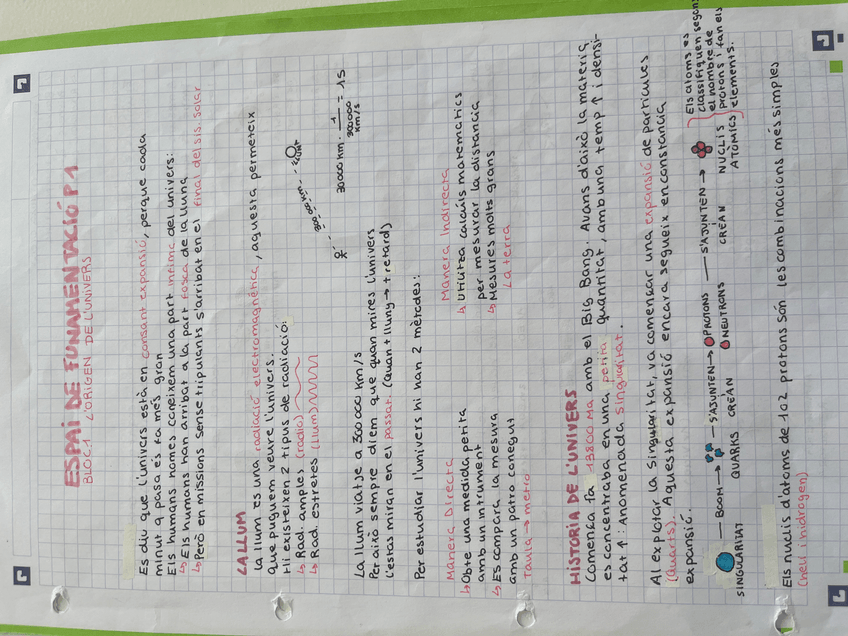 ESPAI DE FUNAMENTACIÓ P1
BLOC 1 L'ORIGEN DE L'UNIVERS
Es diu que l'univers està en consant expansió, perque cada
minut q pasa es fa més gran
Els humans només coneixem una part infima del univers:
↳ Els humans han arribat a la part fosca de la lluna
↳ Però en missions sense tripulants s'arribat en el final del sis. solar
LALLUM
La llum es una radiació electromagnètica, aquesta permeteix
que puguem veure l'univers.
Hi existeixen 2 tipus de radiació:
↳ Rad. amples (radio)
↳ Rad. estretes (llum)
300 000 km
LLUNA
30000 km · 1 / 300000 km/s = 1 S
La llum viatje a 300 000 km/s
Per això sempre diem que quan mires l'univers
l'estas miran en el passat. (Quan + lluny → + retard)
Per estudiar l'univers hi han 2 mètodes:
Manera Directa
↳ Obte una medida petita
amb un intrument
↳ Es compara la mesura
amb un patro conegut
Taula → metro
Manera Indirecta
↳ Utilitza calculs matematics
per mesurar la distancia
↳ Mesures molts grans
La terra
HISTORIA DE L'UNIVERS
Comença fa 13800 Ma amb el Big Bang. Avans d'això la materia
es concentraba en una petita quantitat, amb una temp ↑ i densi-
tat ↑. Anomenada singularitat.
Al explotar la singularitat, va començar una expansió de particules
(Quarts). Aquesta expansió encara segueix en constancia
expansió.
SINGULARITAT
— BOOM →
QUARKS
— S'AJUNTEN →
CREAN
PROTONS
NEUTRONS
— S'AJUNTEN →
CREAN
NUCLIS
ATÒMICS
Els atoms es
classifiquen segons
el nombre de
protons i fan els
elements.
Els nuclis d'atoms de 1 o 2 protons són les combinacions més simples
(heli i hidrogen)